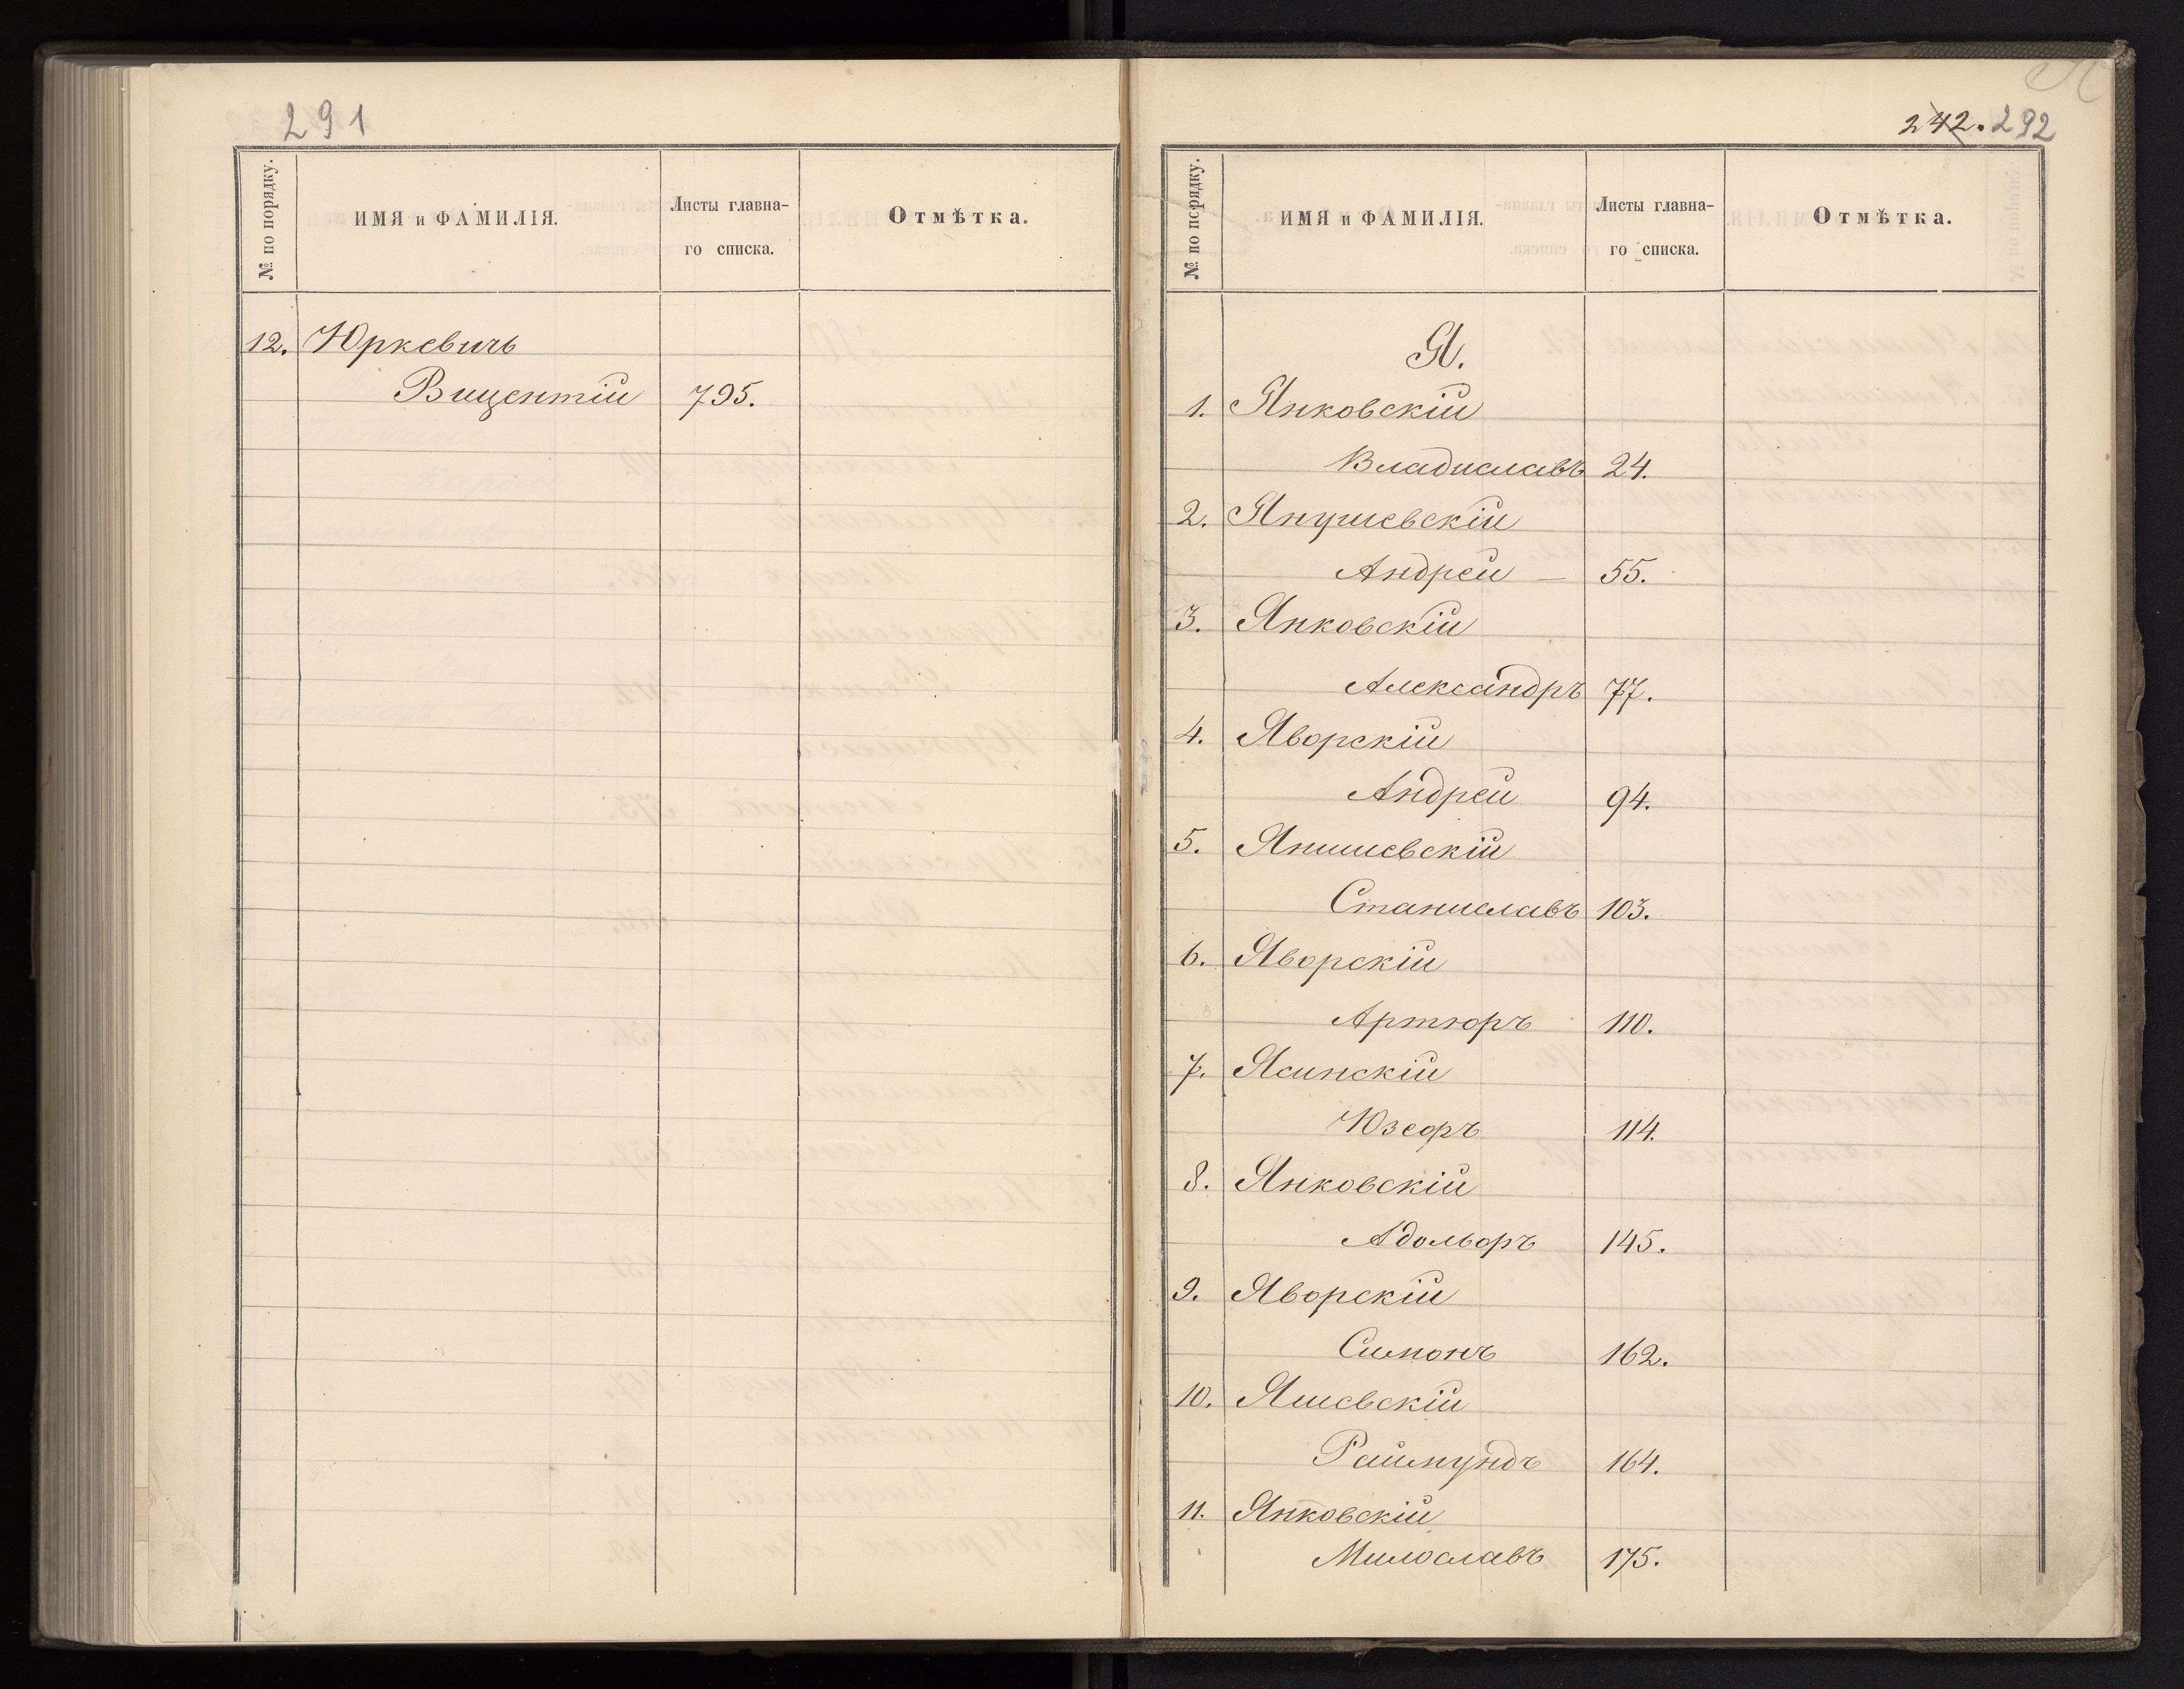 291
№ по порядку.
ИМЯ и ФАМИЛІЯ.
Листы главна-
го списка.
Отмѣтка.
12. Юркевичъ
Вицентій 795.
242. 292
№ по порядку.
ИМЯ и ФАМИЛІЯ.
Листы главна-
го списка.
Отмѣтка.
Я.
1. Янковскій
Владиславъ 24.
2. Янушевскій
Андрей — 55.
3. Янковскій
Александръ 77.
4. Яворскій
Андрей 94.
5. Янишевскій
Станиславъ 103.
6. Яворскій
Артюръ 110.
7. Ясинскій
Юзефъ 114.
8. Янковскій
Адольфъ 145.
9. Яворскій
Симонъ 162.
10. Яшевскій
Раймундъ 164.
11. Янковскій
Милославъ 175.